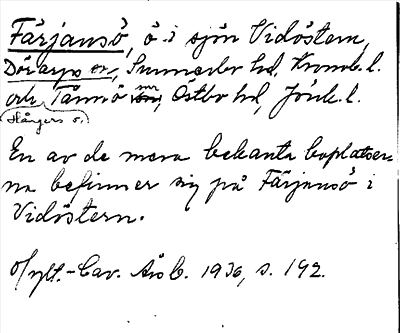 Färjansö, ö i sjön Vidöstern,
Dörarps sn, Sunnerbo hd, Kronob. l.
och Tånnö sn, Östbo hd, Jönk. l.
Hångers o.
En av de mera bekanta boplatser-
na befinner sig på Färjansö i
Vidöstern.
Hylt.-Cav. Årsb. 1936, s. 192.